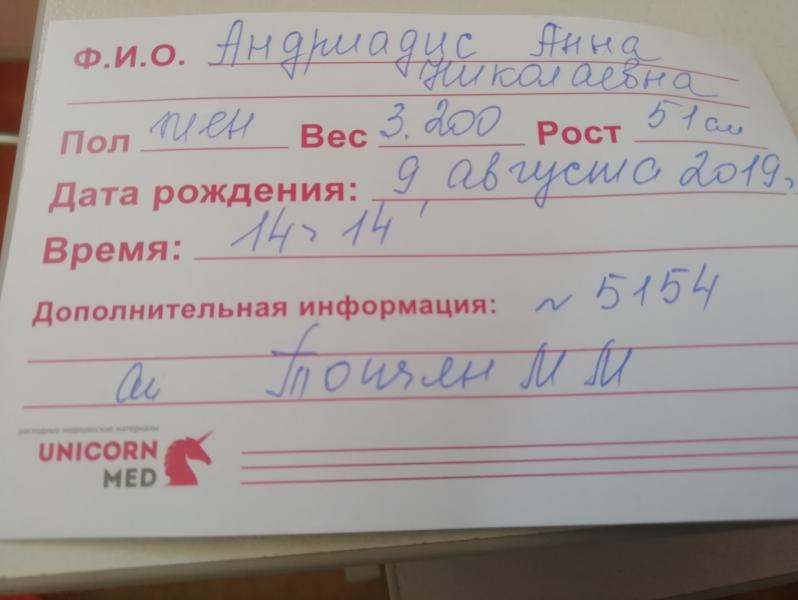 Ф.И.О. Андриадис Анна
Николаевна
Пол жен Вес 3.200 Рост 51 см
Дата рождения: 9 августа 2019г.
Время: 14ч 14'
Дополнительная информация: ~ 5154
ММ
расходные медицинские материалы
UNICORN
MED